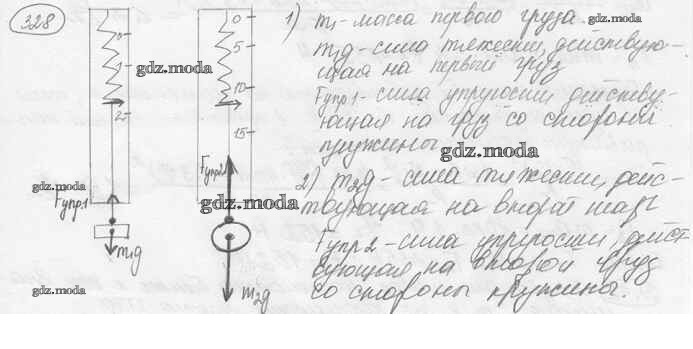 328
0
1
2
Fупр1
m₁g
0
5
10
15
Fупр2
m₂g
1) m₁ - масса первого груза.
m₁g - сила тяжести, действую-
щая на первый груз
Fупр1 - сила упругости действу-
ющая на груз со стороны
пружины
2) m₂g - сила тяжести, дейс-
твующая на второй шар
Fупр2 - сила упругости, дейст
вующая на второй груз
со стороны пружины.
gdz.moda
gdz.moda
gdz.moda
gdz.moda
gdz.moda
gdz.moda